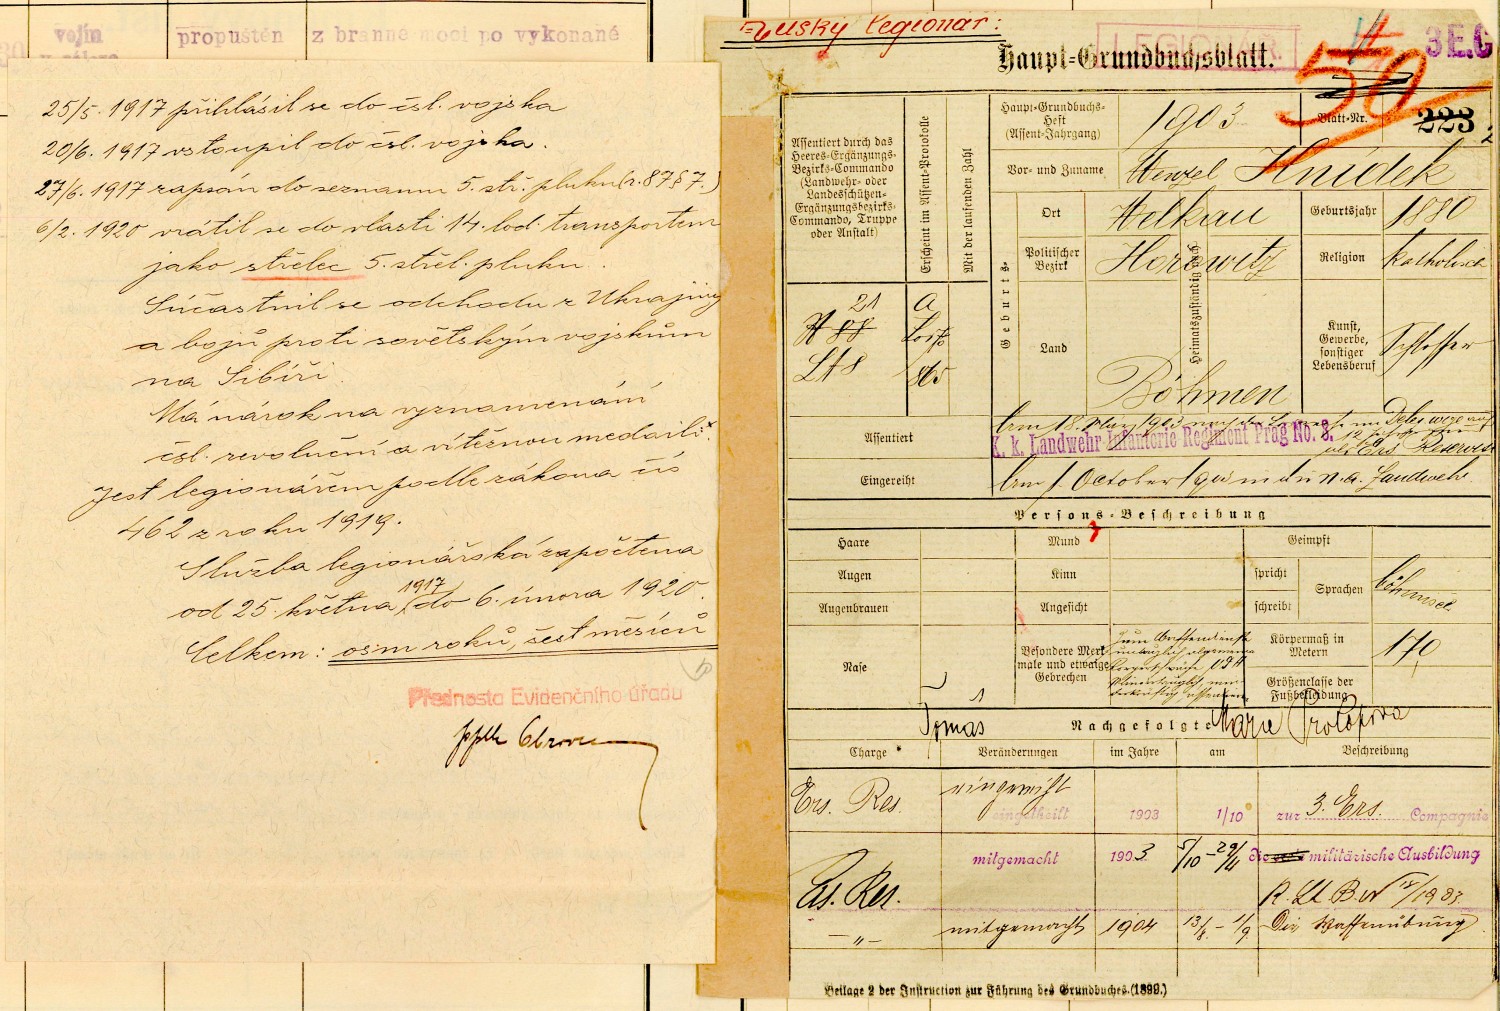 vojín propuštěn z branné moci po vykonané
25/5. 1917 přihlásil se do čsl. vojska
20/6. 1917 vstoupil do čsl. vojska.
27/6. 1917 zapsán do seznamu 5. stř. pluku (č. 8787.)
6/2. 1920 vrátil se do vlasti 14. lod. transportem
jako střelec 5. střel. pluku.
Súčastnil se odchodu z Ukrajiny
a bojů proti sovětským vojskům
na Sibiři.
Má nárok na vyznamenání
čsl. revoluční a vítěznou medaili.
Jest legionářem podle zákona čís
462 z roku 1919.
Služba legionářská započtena
od 25. května 1917 do 6. února 1920.
Celkem: osm roků, šest měsíců
Přednosta Evidenčního úřadu
Ruský legionář:
LEGIONÁŘ.
3E.C
Haupt-Grundbuchsblatt.
50
Assentiert durch das Heeres-Ergänzungs-Bezirks-Commando (Landwehr- oder Landesschützen-Ergänzungsbezirks-Commando, Truppe oder Anstalt)
Erscheint im Assent-Protokolle
Mit der laufenden Zahl
Haupt-Grundbuchs-Heft (Assent-Jahrgang) 1903
Blatt-Nr. 223
Vor- und Zuname Wenzel Hnídek
Geburts-
Ort Welkau
Geburtsjahr 1880
Politischer Bezirk Horowitz
Heimatszuständig nach
Religion katholisch
Land Böhmen
Kunst, Gewerbe, sonstiger Lebensberuf Schlosser
21
H 88
A
LH 8
865
Assentiert
K. k. Landwehr Infanterie Regiment Prag No. 8.
Eingereiht am 1. October
Persons-Beschreibung
Haare
Mund
Geimpft
Augen
Kinn
spricht
Sprachen böhmisch
Augenbrauen
Angesicht
schreibt
Nase
Besondere Merkmale und etwaige Gebrechen
Körpermaß in Metern 170
Größenclasse der Fußbekleidung
Tomáš
Nachgefolgte
Marie
Charge Veränderungen im Jahre am Beschreibung
Ers. Res. eingereiht
eingetheilt 1903 1/10 zur 3. Ers. Compagnie
mitgemacht 1903 5/10 - 29/11 die militärische Ausbildung
Ers. Res.
—„— mitgemacht 1904 13/8. - 1/9. Die Waffenübung
Beilage 2 der Instruction zur Führung des Grundbuches. (1899.)